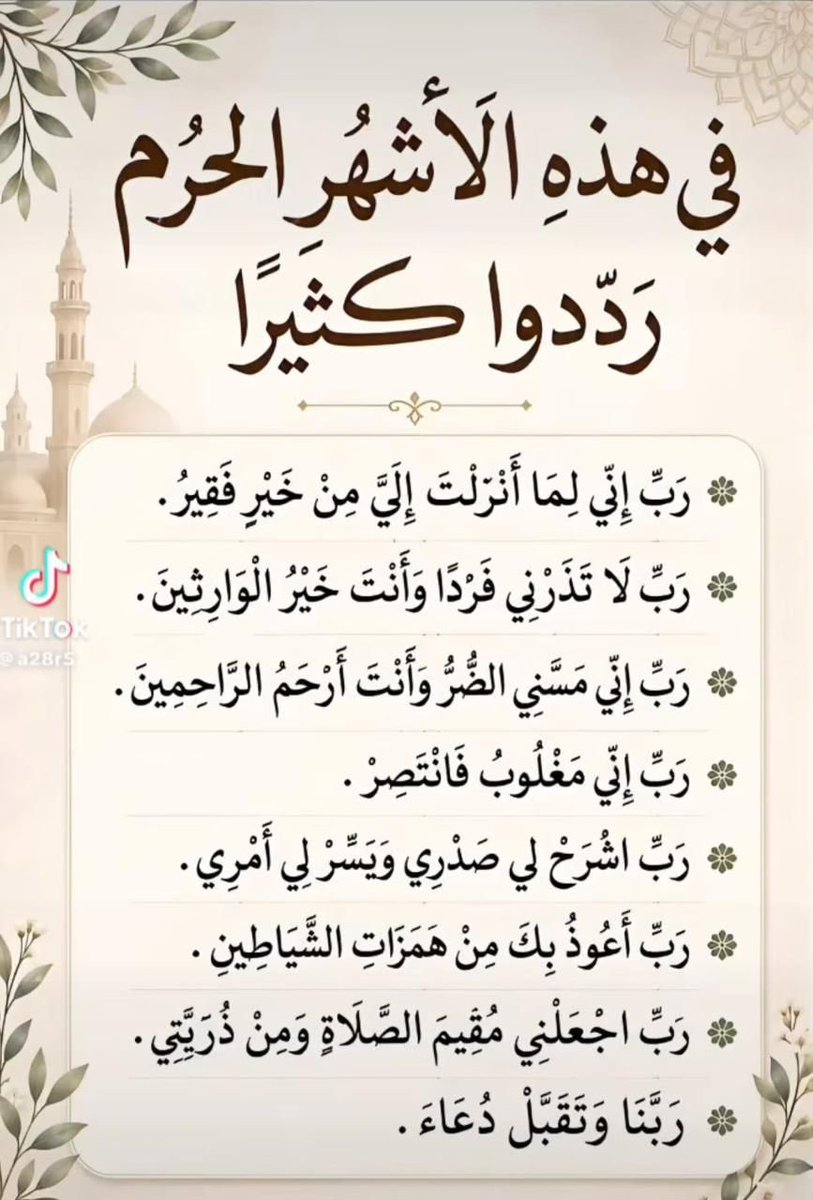 في هذهِ الَأشهُرِ الحرُم
رَدّدوا كثيِرًا
رَبِّ إِنّي لِمَا أَنْزَلْتَ إِلَيَّ مِنْ خَيْرٍ فَقِيرُ.
رَبِّ لَا تَذَرْنِي فَرْدًا وَأَنْتَ خَيْرُ الْوَارِثِينَ.
رَبِّ إِنّي مَسَّنِي الضُّرُّ وَأَنْتَ أَرْحَمُ الرَّاحِمِينَ.
رَبِّ إِنّي مَغْلُوبُ فَانْتَصِرْ .
رَبِّ اشْرَحْ لي صَدْرِي وَيَسِّرْ لِي أَمْرِي.
رَبِّ أَعُوذُ بِكَ مِنْ هَمَزَاتِ الشَّيَاطِينِ .
رَبِّ اجْعَلْنِي مُقِيمَ الصَّلَاةِ وَمِنْ ذُرَيَّتِي.
رَبَّنَا وَتَقَبَّلْ دُعَاءَ .
TikTok
@a28r5